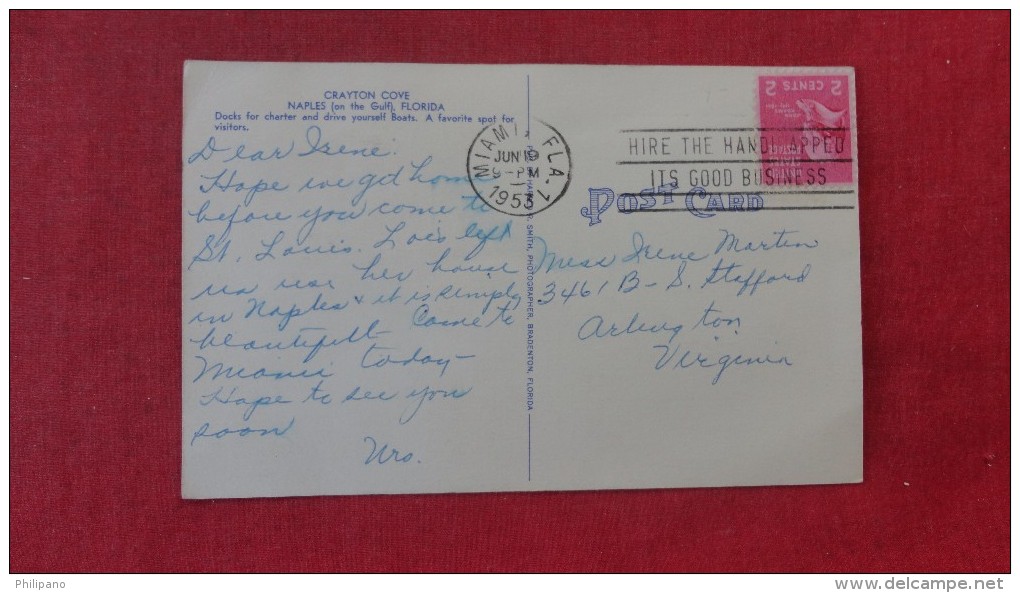 CRAYTON COVE
NAPLES (on the Gulf), FLORIDA
Docks for charter and drive yourself Boats. A favorite spot for
visitors.
Dear Irene:
Hope we get home
before you come to
St. Louis. Lois left
us use her house
in Naples & it is simply
beautiful. Came to
Miami today—
Hope to see you
soon
MIAMI, FLA. 1
JUN 19
9-PM
1953
HIRE THE HANDICAPPED
ITS GOOD BUSINESS
2 CENTS 2
POST CARD
Miss Irene Marten
3461 B-S. Stafford
Arlington,
Virginia
SMITH, PHOTOGRAPHER, BRADENTON, FLORIDA
Philipano
www.delcampe.net